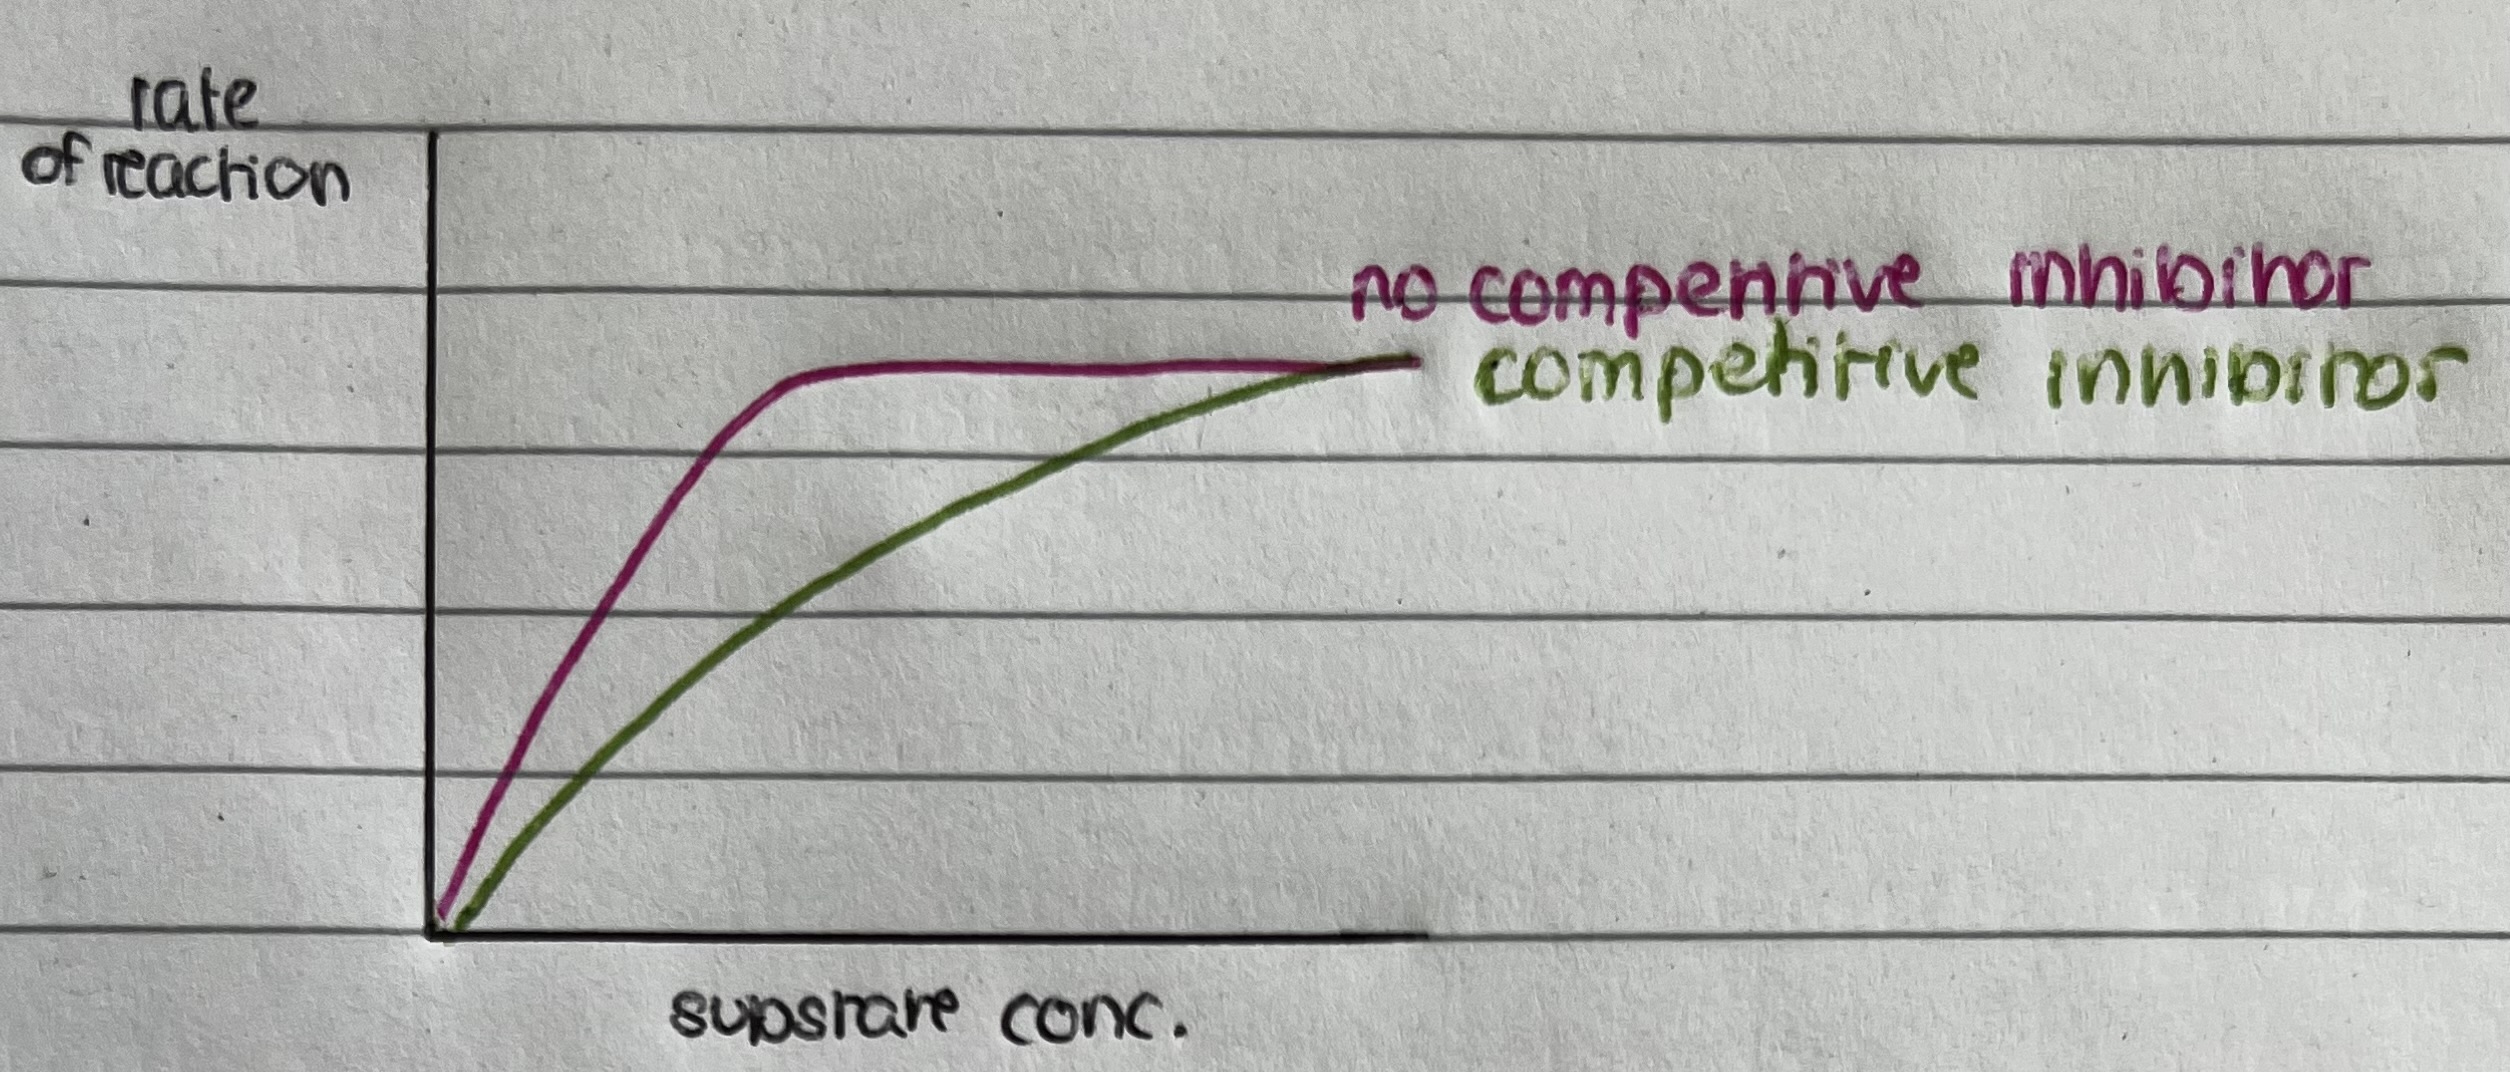 rate
of reaction
no competitive inhibitor
competitive inhibitor
substrate conc.